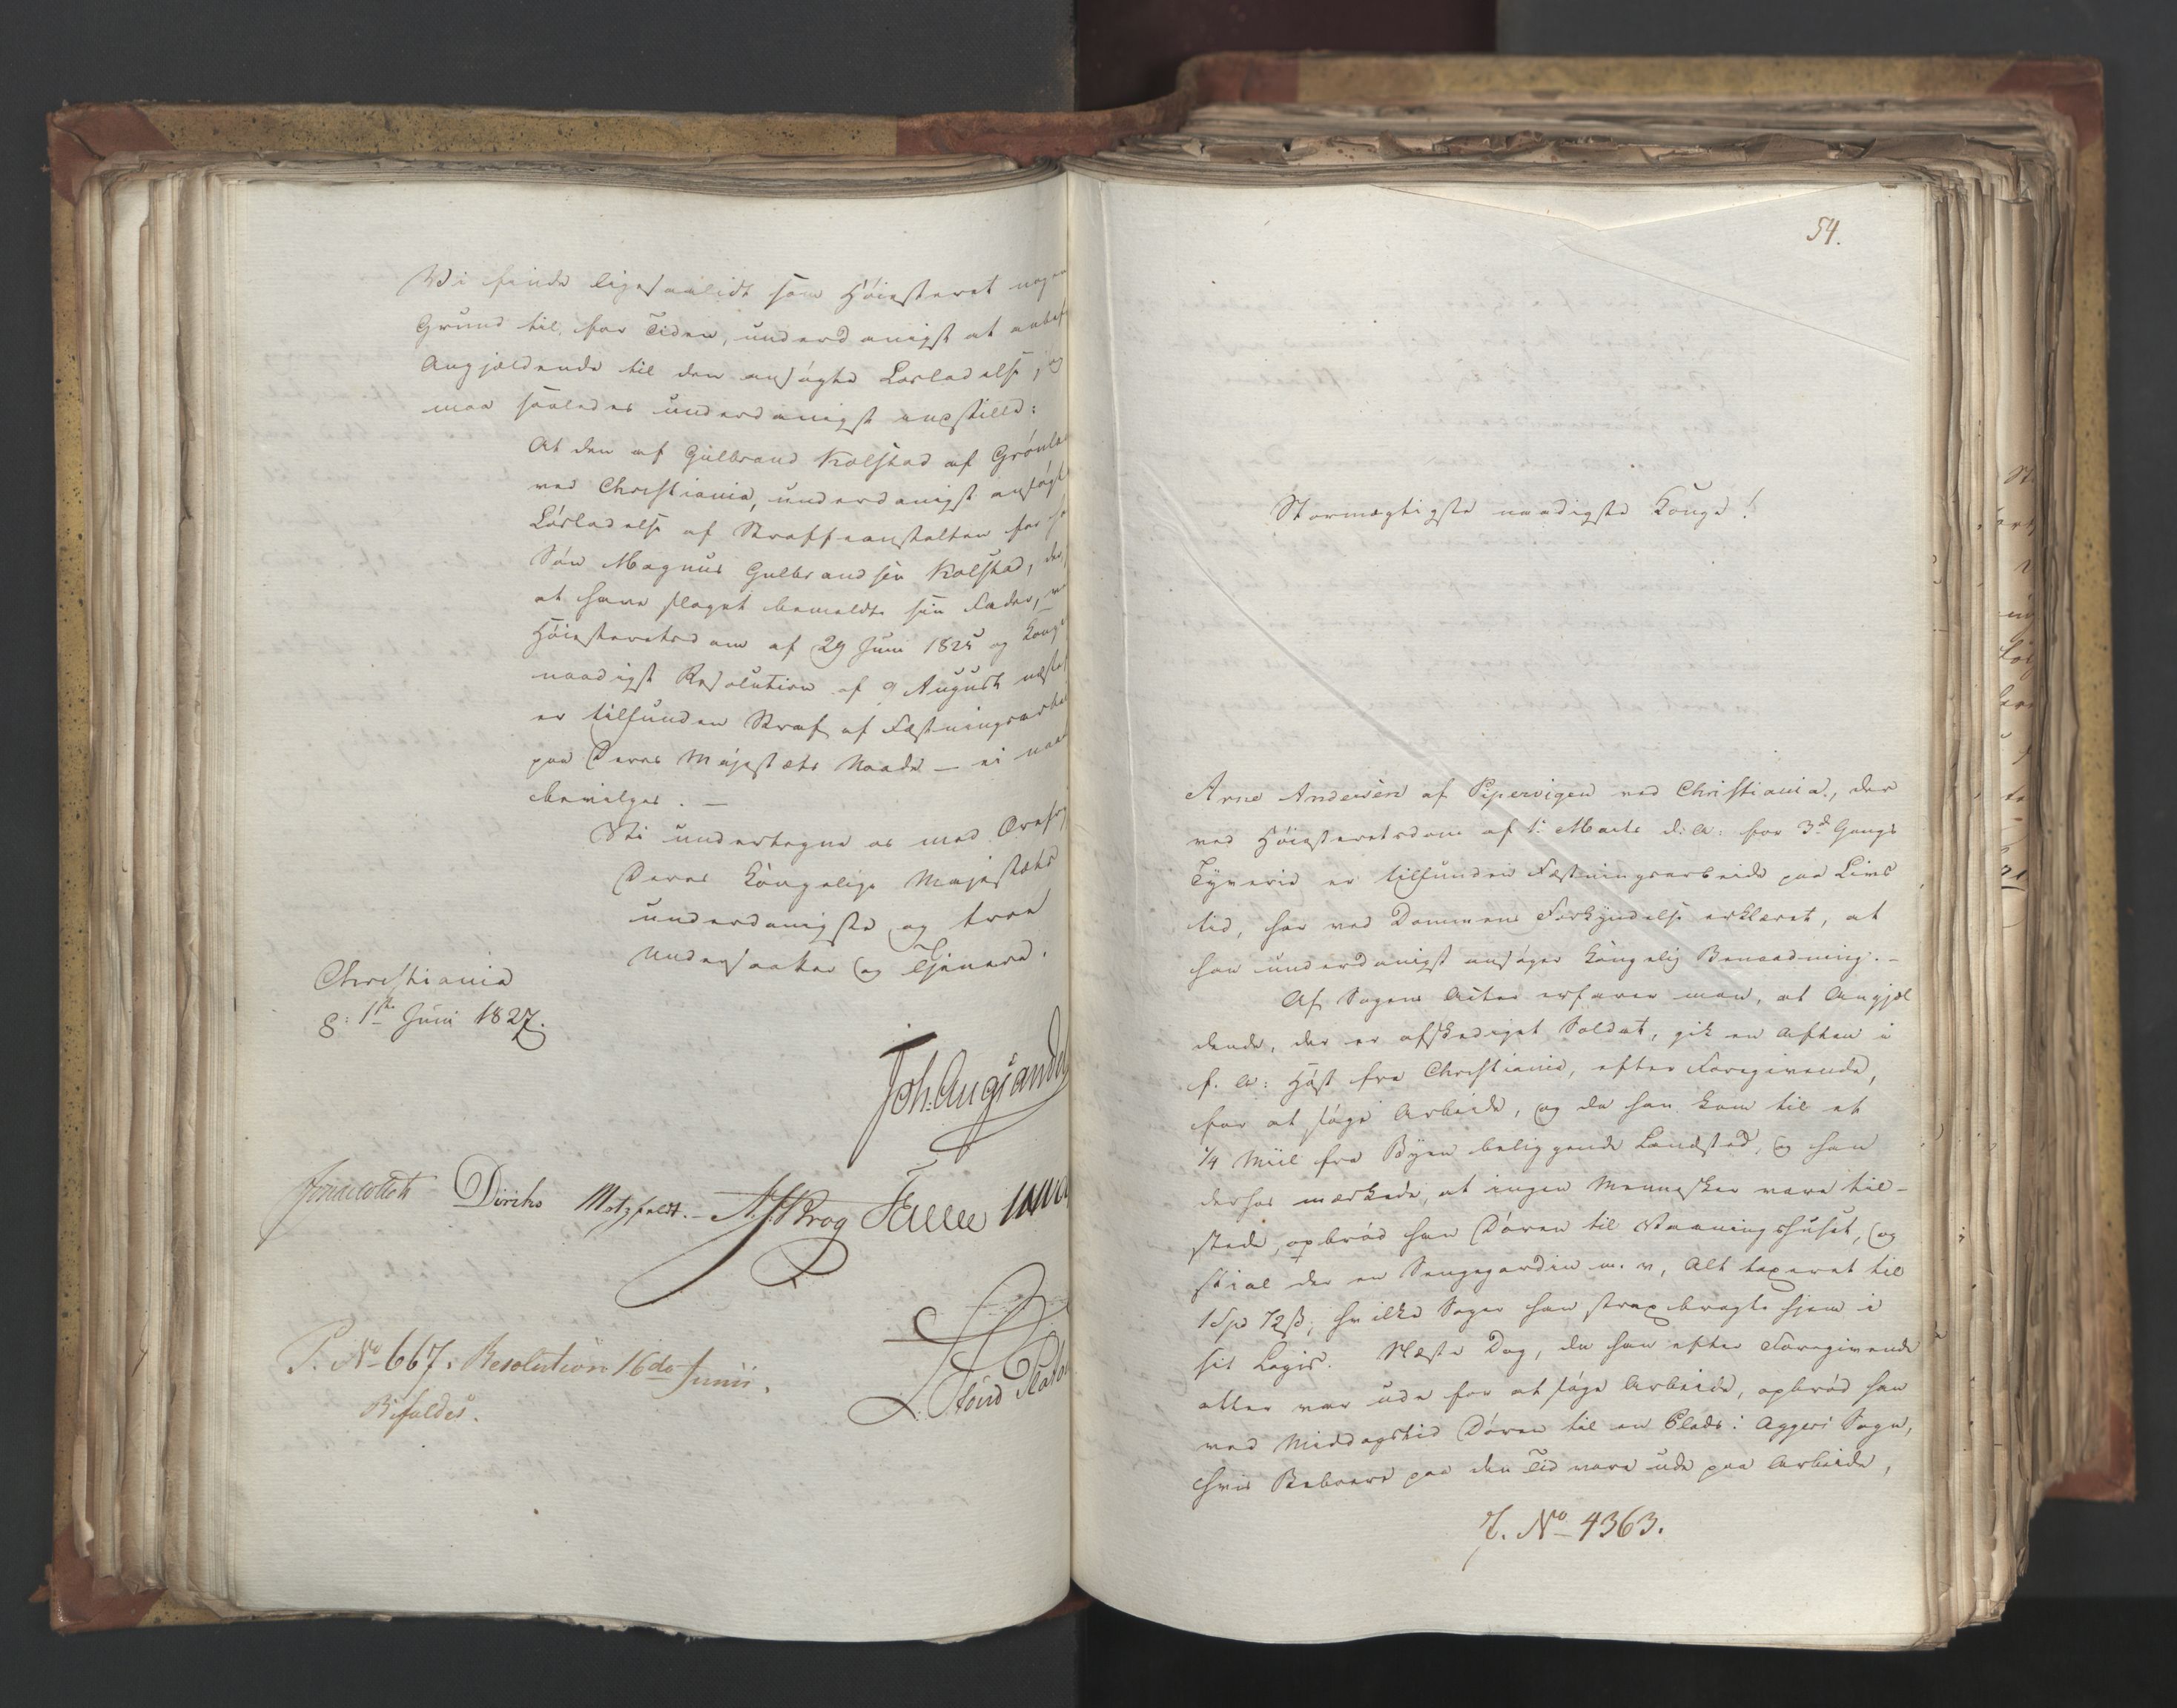 Vi finde ligesaalidt som Höiesteret nogen
Grund til, for Tiden, underdanigst at anbef
Angjældende til den ansögte Losladelse, og
maa saaledes underdanigst indstille:
At den af Gulbrand Kolstad af Grönla
ved Christiania, underdanigst ansögte
Lösladelse af Straffeanstalten for
Sön Magnus Gulbrandsen Kolstad, der,
at have slaget bemeldte sin Fader,
Höiesteretsdom af 29 Juni 1825 og Konge
naadigst Resolution af 9 August næstef
er tilfunden Straf af Fæstningsarbei
paa Deres Majestæts Naade – ei naa
bevilges. –
Vi undertegne os med Ærefr
Deres Kongelige Majestæts
underdanigste og troe
Undersaatter og Tjenere.
Christiania
d: 1ste Juni 1827.
Joh. Aug. Sande
Diriks Motzfeldt. Krog
P. No 667. Resolution 16de Junii.
Bifaldes.
54.
Stormægtigste naadigste Konge!
Arne Andersen af Pipervigen ved Christiania, der
ved Höiesteretsdom af 1: Marts d: A: for 3de Gangs
Tyverie er tilfunden Fæstningsarbeide paa Livs
tid, har ved Dommens Forkyndelse erklæret, at
han underdanigst ansöger Kongelig Benaadning. –
Af Sagens Acter erfarer man, at Angjæl
dende, der er afskediget Soldat, gik en Aften i
f. A: Höst fra Christiania, efter Foregivende,
for at söge Arbeide, og da han kom til et
1/4 Miil fra Byen beliggende Landsted, og han
derhos mærkede, at ingen Mennesker vare til-
stede, opbröd han Dören til Vaaningshuset, og
stjal der en Sengegardin m. v, Alt taxeret til
1 Spd 72 ß, hvilke Sager han strax bragte hjem i
sit Logis. Næste Dag, da han efter Foregivende
atter var ude for at söge Arbeide, opbröd han
ved Middagstid Dören til en Plads i Aggers Sogn,
hvis Beboere paa den Tid vare ude paa Arbeide,
J. No 4363.